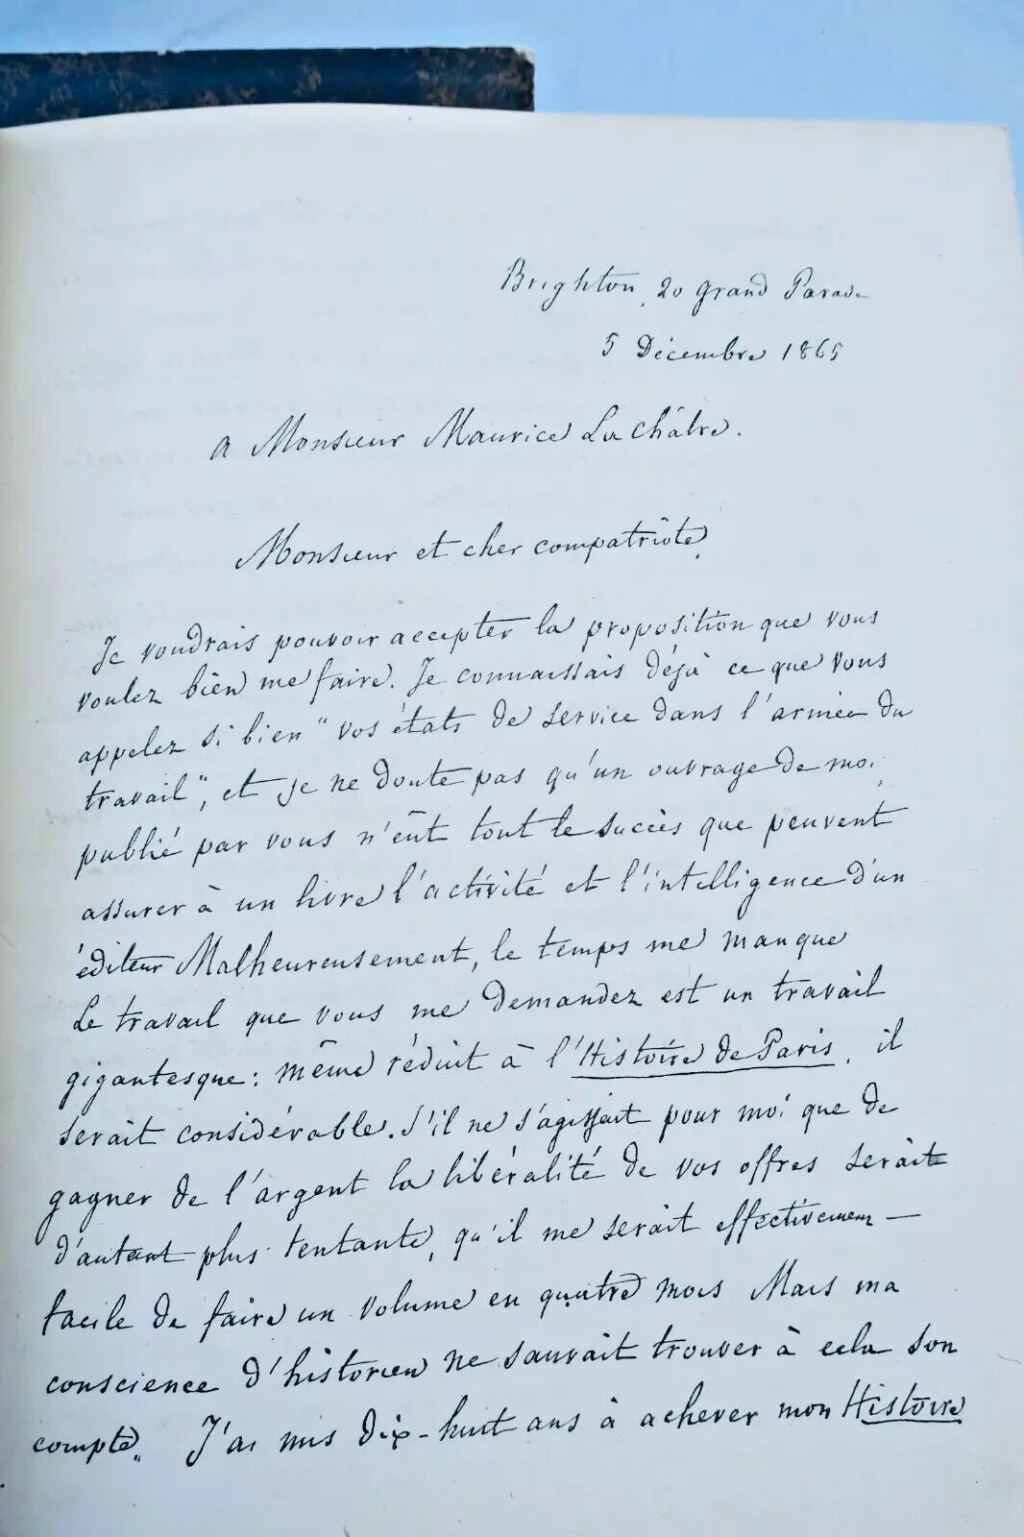 Brighton, 20 grand Parade
5 Décembre 1865
A Monsieur Maurice La Châtre.
Monsieur et cher compatriote,
Je voudrais pouvoir accepter la proposition que vous
voulez bien me faire. Je connaissais déjà ce que vous
appelez si bien "vos états de service dans l'armée du
travail", et je ne doute pas qu'un ouvrage de moi,
publié par vous n'eût tout le succès que peuvent
assurer à un livre l'activité et l'intelligence d'un
éditeur Malheureusement, le temps me manque
Le travail que vous me demandez est un travail
gigantesque: même réduit à l'Histoire de Paris, il
serait considérable. S'il ne s'agissait pour moi que de
gagner de l'argent la libéralité de vos offres serait
d'autant plus tentante, qu'il me serait effectivement
facile de faire un volume en quatre mois Mais ma
conscience d'historien ne saurait trouver à cela son
compte. J'ai mis dix-huit ans à achever mon Histoire